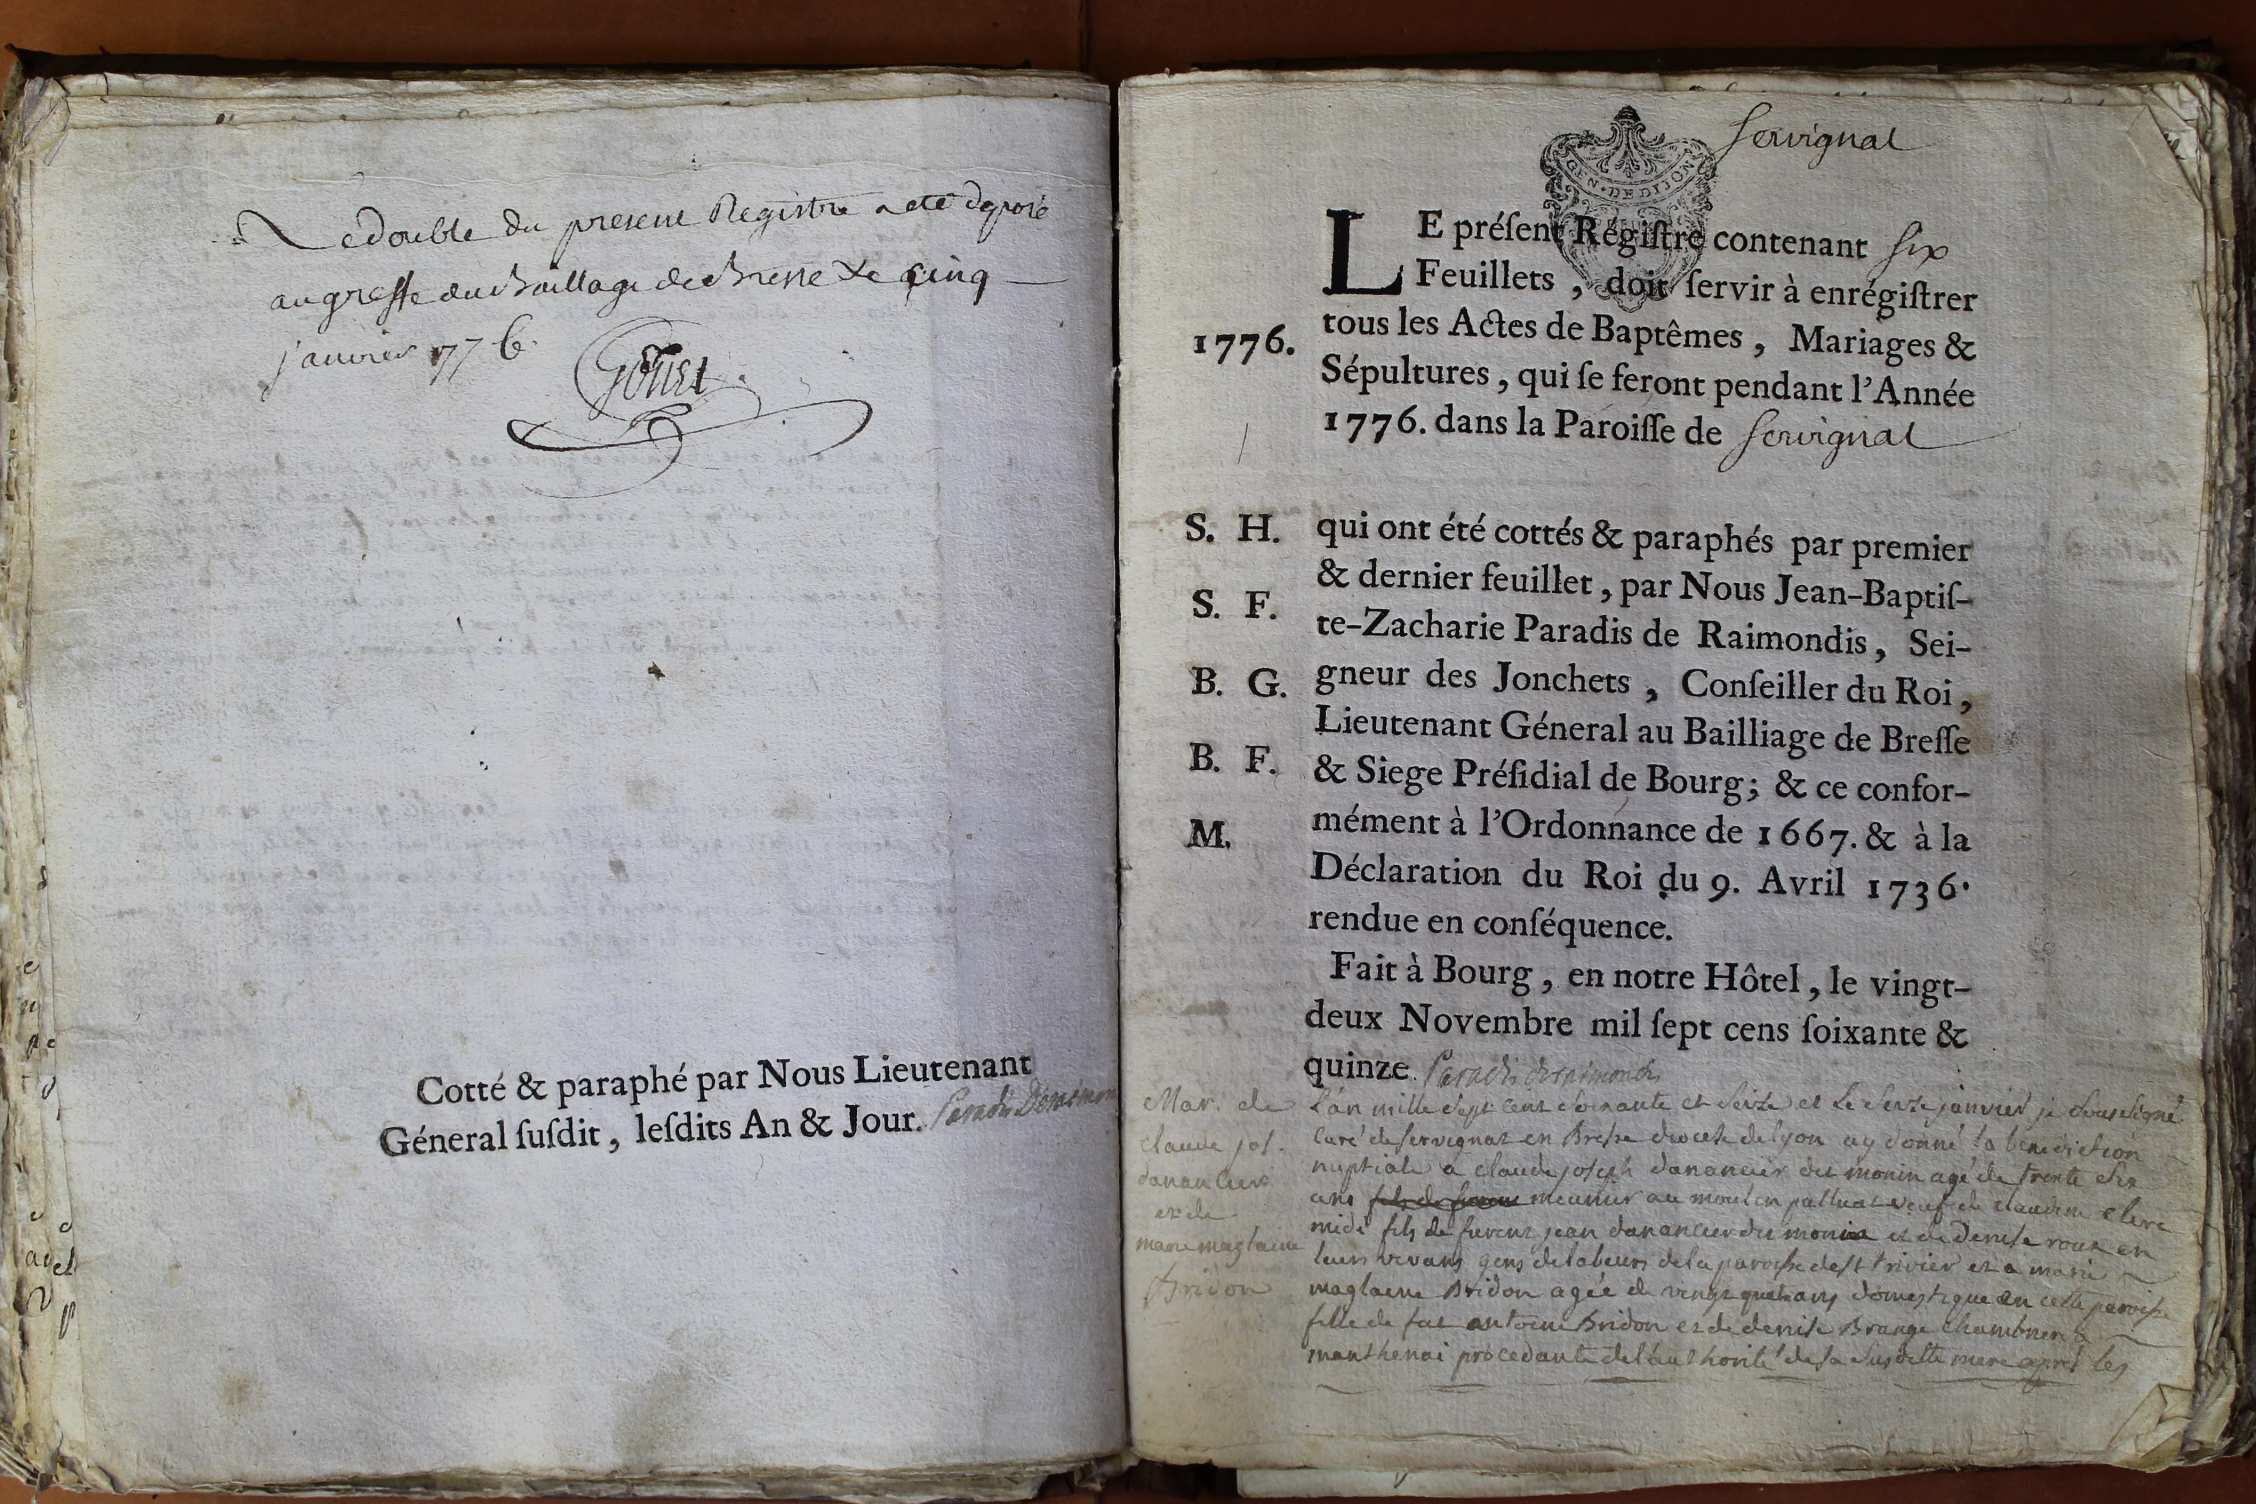 Le double du present Registre a eté deposé
au greffe du Baillage de Bresse Le cinq
janvier 1776.
Gouet
Cotté & paraphé par Nous Lieutenant
Géneral ſuſdit, leſdits An & Jour. Paradis De
Servignat
GEN·DE DIJON
LE préſent Régiſtre contenant ſix
Feuillets, doit ſervir à enrégiſtrer
1776. tous les Actes de Baptêmes, Mariages &
Sépultures, qui ſe feront pendant l'Année
1776. dans la Paroiſſe de Servignat
S. H. qui ont été cottés & paraphés par premier
& dernier feuillet, par Nous Jean-Baptiſ-
S. F. te-Zacharie Paradis de Raimondis, Sei-
B. G. gneur des Jonchets, Conſeiller du Roi,
Lieutenant Géneral au Bailliage de Breſſe
B. F. & Siege Préſidial de Bourg; & ce confor-
M. mément à l'Ordonnance de 1667. & à la
Déclaration du Roi du 9. Avril 1736.
rendue en conſéquence.
Fait à Bourg, en notre Hôtel, le vingt-
deux Novembre mil ſept cens ſoixante &
quinze. Paradis de raimondis
Mar. de
claude jos.
danancier
et de
marie maglaine
Bridon
L'an mille sept cent soixante et seize et le seize janvier je soussigné
curé de servignat en Bresse diocese de lyon ay donné la benediction
nuptiale a claude joseph danancier du monin agé de trente six
ans meunier au moulin palluat veuf de claudine clerc
fils de furent jean danancier du monin et de denise roux en
leurs vivans gens de labeurs de la paroisse de st trivier et a marie
maglaine Bridon agée de vingt quatre ans domestique en cette paroisse
fille de fut antoine Bridon et de denise Brange chambriere a
manthenai procedante de l'authorité de sa susditte mere apres les